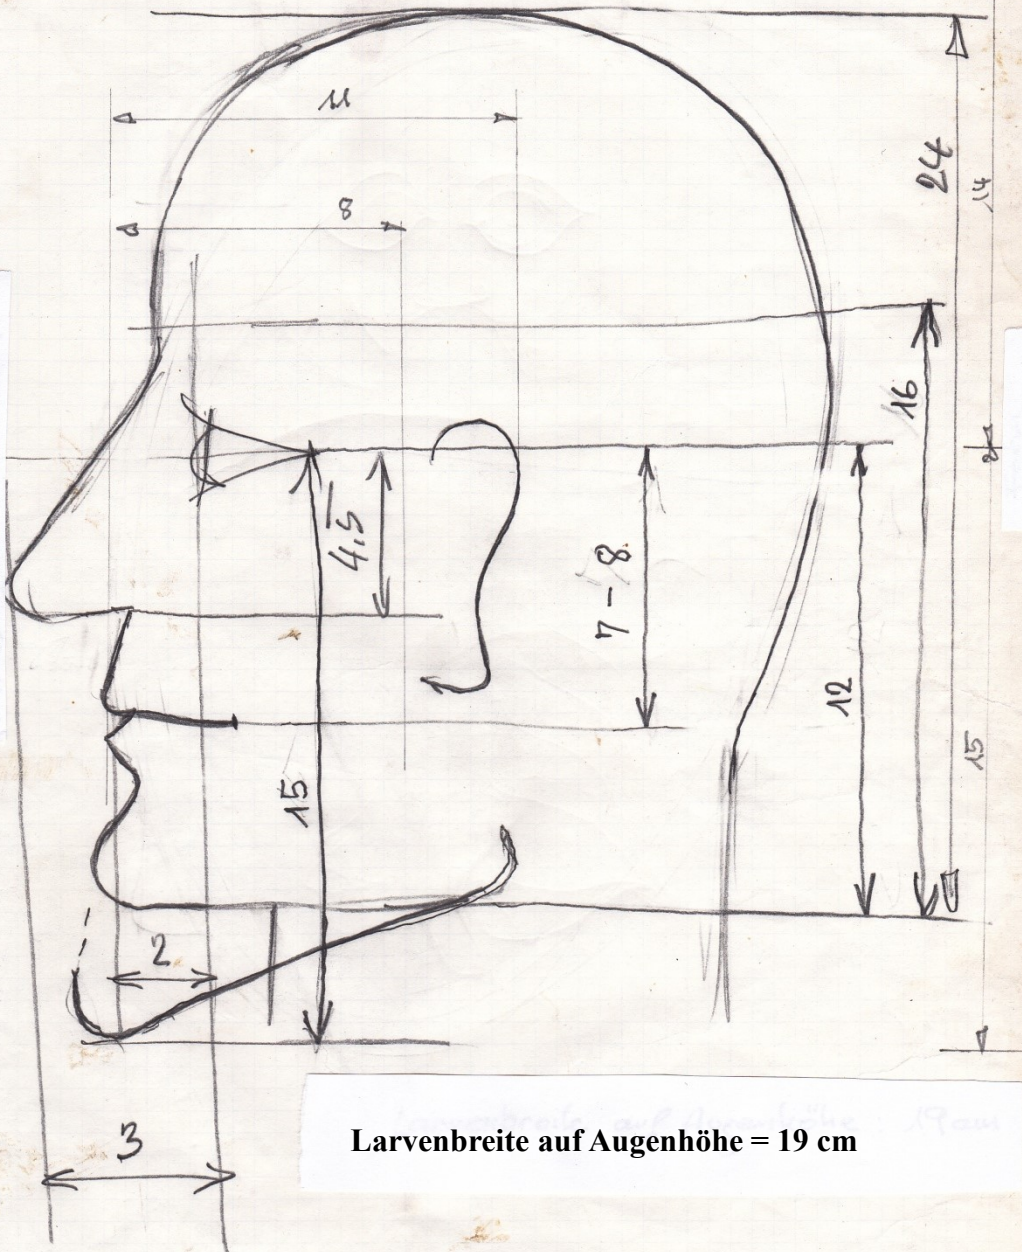 11
8
24
14
16
4.5
7-8
12
15
15
2
3
Larvenbreite auf Augenhöhe = 19 cm